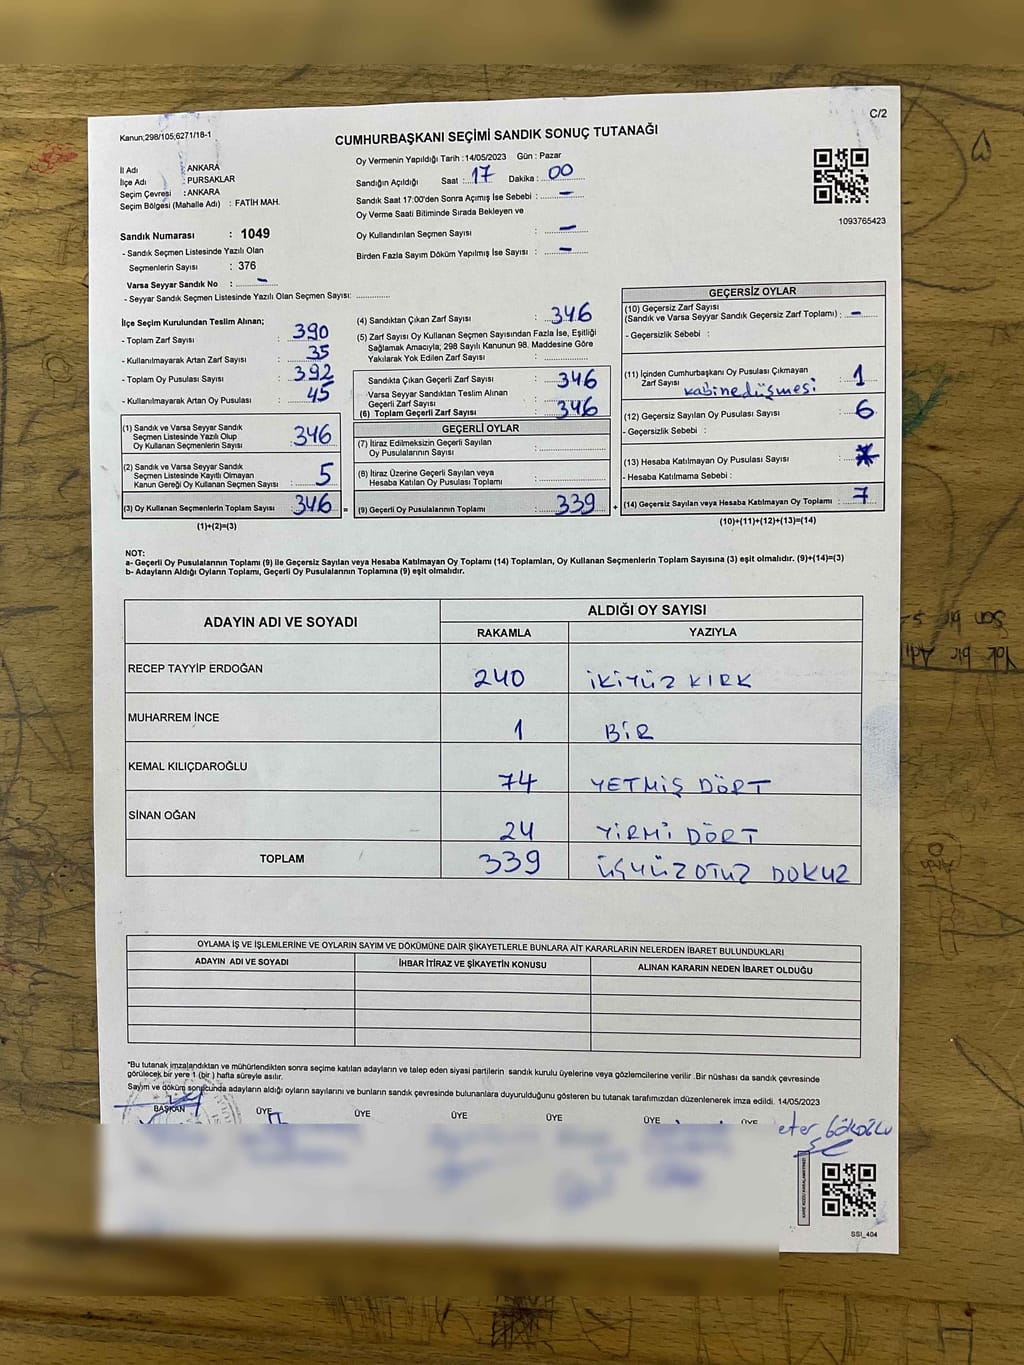 C/2
Kanun;298/105;6271/18-1
CUMHURBAŞKANI SEÇİMİ SANDIK SONUÇ TUTANAĞI
İl Adı : ANKARA
İlçe Adı : PURSAKLAR
Seçim Çevresi : ANKARA
Seçim Bölgesi (Mahalle Adı) : FATİH MAH.
Sandık Numarası : 1049
- Sandık Seçmen Listesinde Yazılı Olan
Seçmenlerin Sayısı : 376
Varsa Seyyar Sandık No : -
- Seyyar Sandık Seçmen Listesinde Yazılı Olan Seçmen Sayısı:
Oy Vermenin Yapıldığı Tarih :14/05/2023 Gün : Pazar
Sandığın Açıldığı Saat : 17 Dakika : 00
Sandık Saat 17:00'den Sonra Açımış İse Sebebi : -
Oy Verme Saati Bitiminde Sırada Bekleyen ve
Oy Kullandırılan Seçmen Sayısı : -
Birden Fazla Sayım Döküm Yapılmış İse Sayısı : -
1093765423
İlçe Seçim Kurulundan Teslim Alınan;
- Toplam Zarf Sayısı : 390
- Kullanılmayarak Artan Zarf Sayısı : 35
- Toplam Oy Pusulası Sayısı : 392
- Kullanılmayarak Artan Oy Pusulası : 45
(1) Sandık ve Varsa Seyyar Sandık
Seçmen Listesinde Yazılı Olup
Oy Kullanan Seçmenlerin Sayısı : 346
(2) Sandık ve Varsa Seyyar Sandık
Seçmen Listesinde Kayıtlı Olmayan
Kanun Gereği Oy Kullanan Seçmen Sayısı : 5
(3) Oy Kullanan Seçmenlerin Toplam Sayısı : 346 =
(1)+(2)=(3)
(4) Sandıktan Çıkan Zarf Sayısı : 346
(5) Zarf Sayısı Oy Kullanan Seçmen Sayısından Fazla İse, Eşitliği
Sağlamak Amacıyla; 298 Sayılı Kanunun 98. Maddesine Göre
Yakılarak Yok Edilen Zarf Sayısı :
Sandıkta Çıkan Geçerli Zarf Sayısı : 346
Varsa Seyyar Sandıktan Teslim Alınan
Geçerli Zarf Sayısı :
(6) Toplam Geçerli Zarf Sayısı : 346
GEÇERLİ OYLAR
(7) İtiraz Edilmeksizin Geçerli Sayılan
Oy Pusulalarının Sayısı :
(8) İtiraz Üzerine Geçerli Sayılan veya
Hesaba Katılan Oy Pusulası Toplamı :
(9) Geçerli Oy Pusulalarının Toplamı : 339 +
GEÇERSİZ OYLAR
(10) Geçersiz Zarf Sayısı
(Sandık ve Varsa Seyyar Sandık Geçersiz Zarf Toplamı) : -
- Geçersizlik Sebebi :
(11) İçinden Cumhurbaşkanı Oy Pusulası Çıkmayan
Zarf Sayısı : 1
kabine düşmesi
(12) Geçersiz Sayılan Oy Pusulası Sayısı : 6
- Geçersizlik Sebebi :
(13) Hesaba Katılmayan Oy Pusulası Sayısı :
- Hesaba Katılmama Sebebi :
(14) Geçersiz Sayılan veya Hesaba Katılmayan Oy Toplamı : 7
(10)+(11)+(12)+(13)=(14)
NOT:
a- Geçerli Oy Pusulalarının Toplamı (9) ile Geçersiz Sayılan veya Hesaba Katılmayan Oy Toplamı (14) Toplamları, Oy Kullanan Seçmenlerin Toplam Sayısına (3) eşit olmalıdır. (9)+(14)=(3)
b- Adayların Aldığı Oyların Toplamı, Geçerli Oy Pusulalarının Toplamına (9) eşit olmalıdır.
ADAYIN ADI VE SOYADI
ALDIĞI OY SAYISI
RAKAMLA YAZIYLA
RECEP TAYYİP ERDOĞAN 240 İKİYÜZ KIRK
MUHARREM İNCE 1 BİR
KEMAL KILIÇDAROĞLU 74 YETMİŞ DÖRT
SİNAN OĞAN 24 YİRMİ DÖRT
TOPLAM 339 ÜÇYÜZ OTUZ DOKUZ
OYLAMA İŞ VE İŞLEMLERİNE VE OYLARIN SAYIM VE DÖKÜMÜNE DAİR ŞİKAYETLERLE BUNLARA AİT KARARLARIN NELERDEN İBARET BULUNDUKLARI
ADAYIN ADI VE SOYADI İHBAR İTİRAZ VE ŞİKAYETİN KONUSU ALINAN KARARIN NEDEN İBARET OLDUĞU
*Bu tutanak imzalandıktan ve mühürlendikten sonra seçime katılan adayların ve talep eden siyasi partilerin sandık kurulu üyelerine veya gözlemcilerine verilir .Bir nüshası da sandık çevresinde
görülecek bir yere 1 (bir ) hafta süreyle asılır.
Sayım ve döküm sonucunda adayların aldığı oyların sayılarını ve bunların sandık çevresinde bulunanlara duyurulduğunu gösteren bu tutanak tarafımızdan düzenlenerek imza edildi. 14/05/2023
BAŞKAN ÜYE ÜYE ÜYE ÜYE ÜYE ÜYE
SSI_404